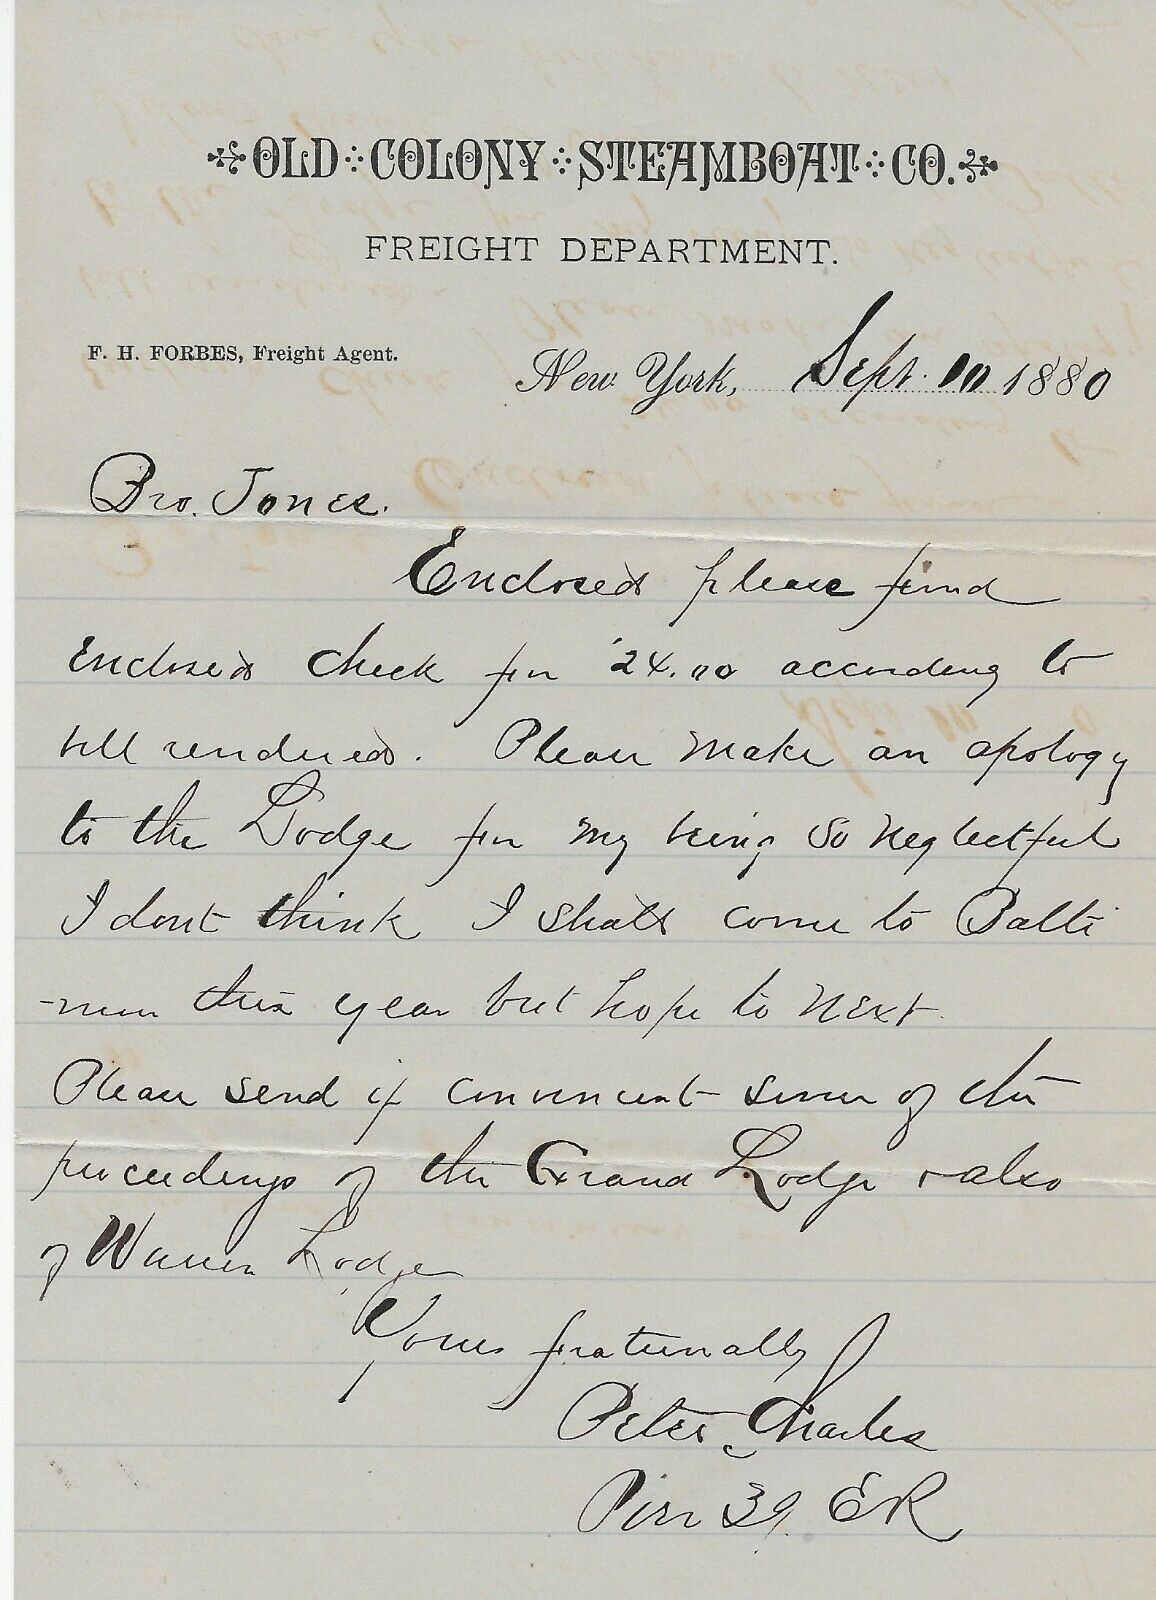 OLD COLONY STEAMBOAT CO.
FREIGHT DEPARTMENT.
F. H. FORBES, Freight Agent.
New York, Sept. 10 1880
Bro. Jones.
Enclosed please find
enclosed check for $24.00 according to
bill rendered. Please make an apology
to the Lodge for my being so neglectful
I dont think I shall come to Balti
-more this year but hope to next.
Please send if convenient some of the
proceedings of the Grand Lodge & also
of Warren Lodge
Yours fraternally
Peter Charles
Pier 39 ER